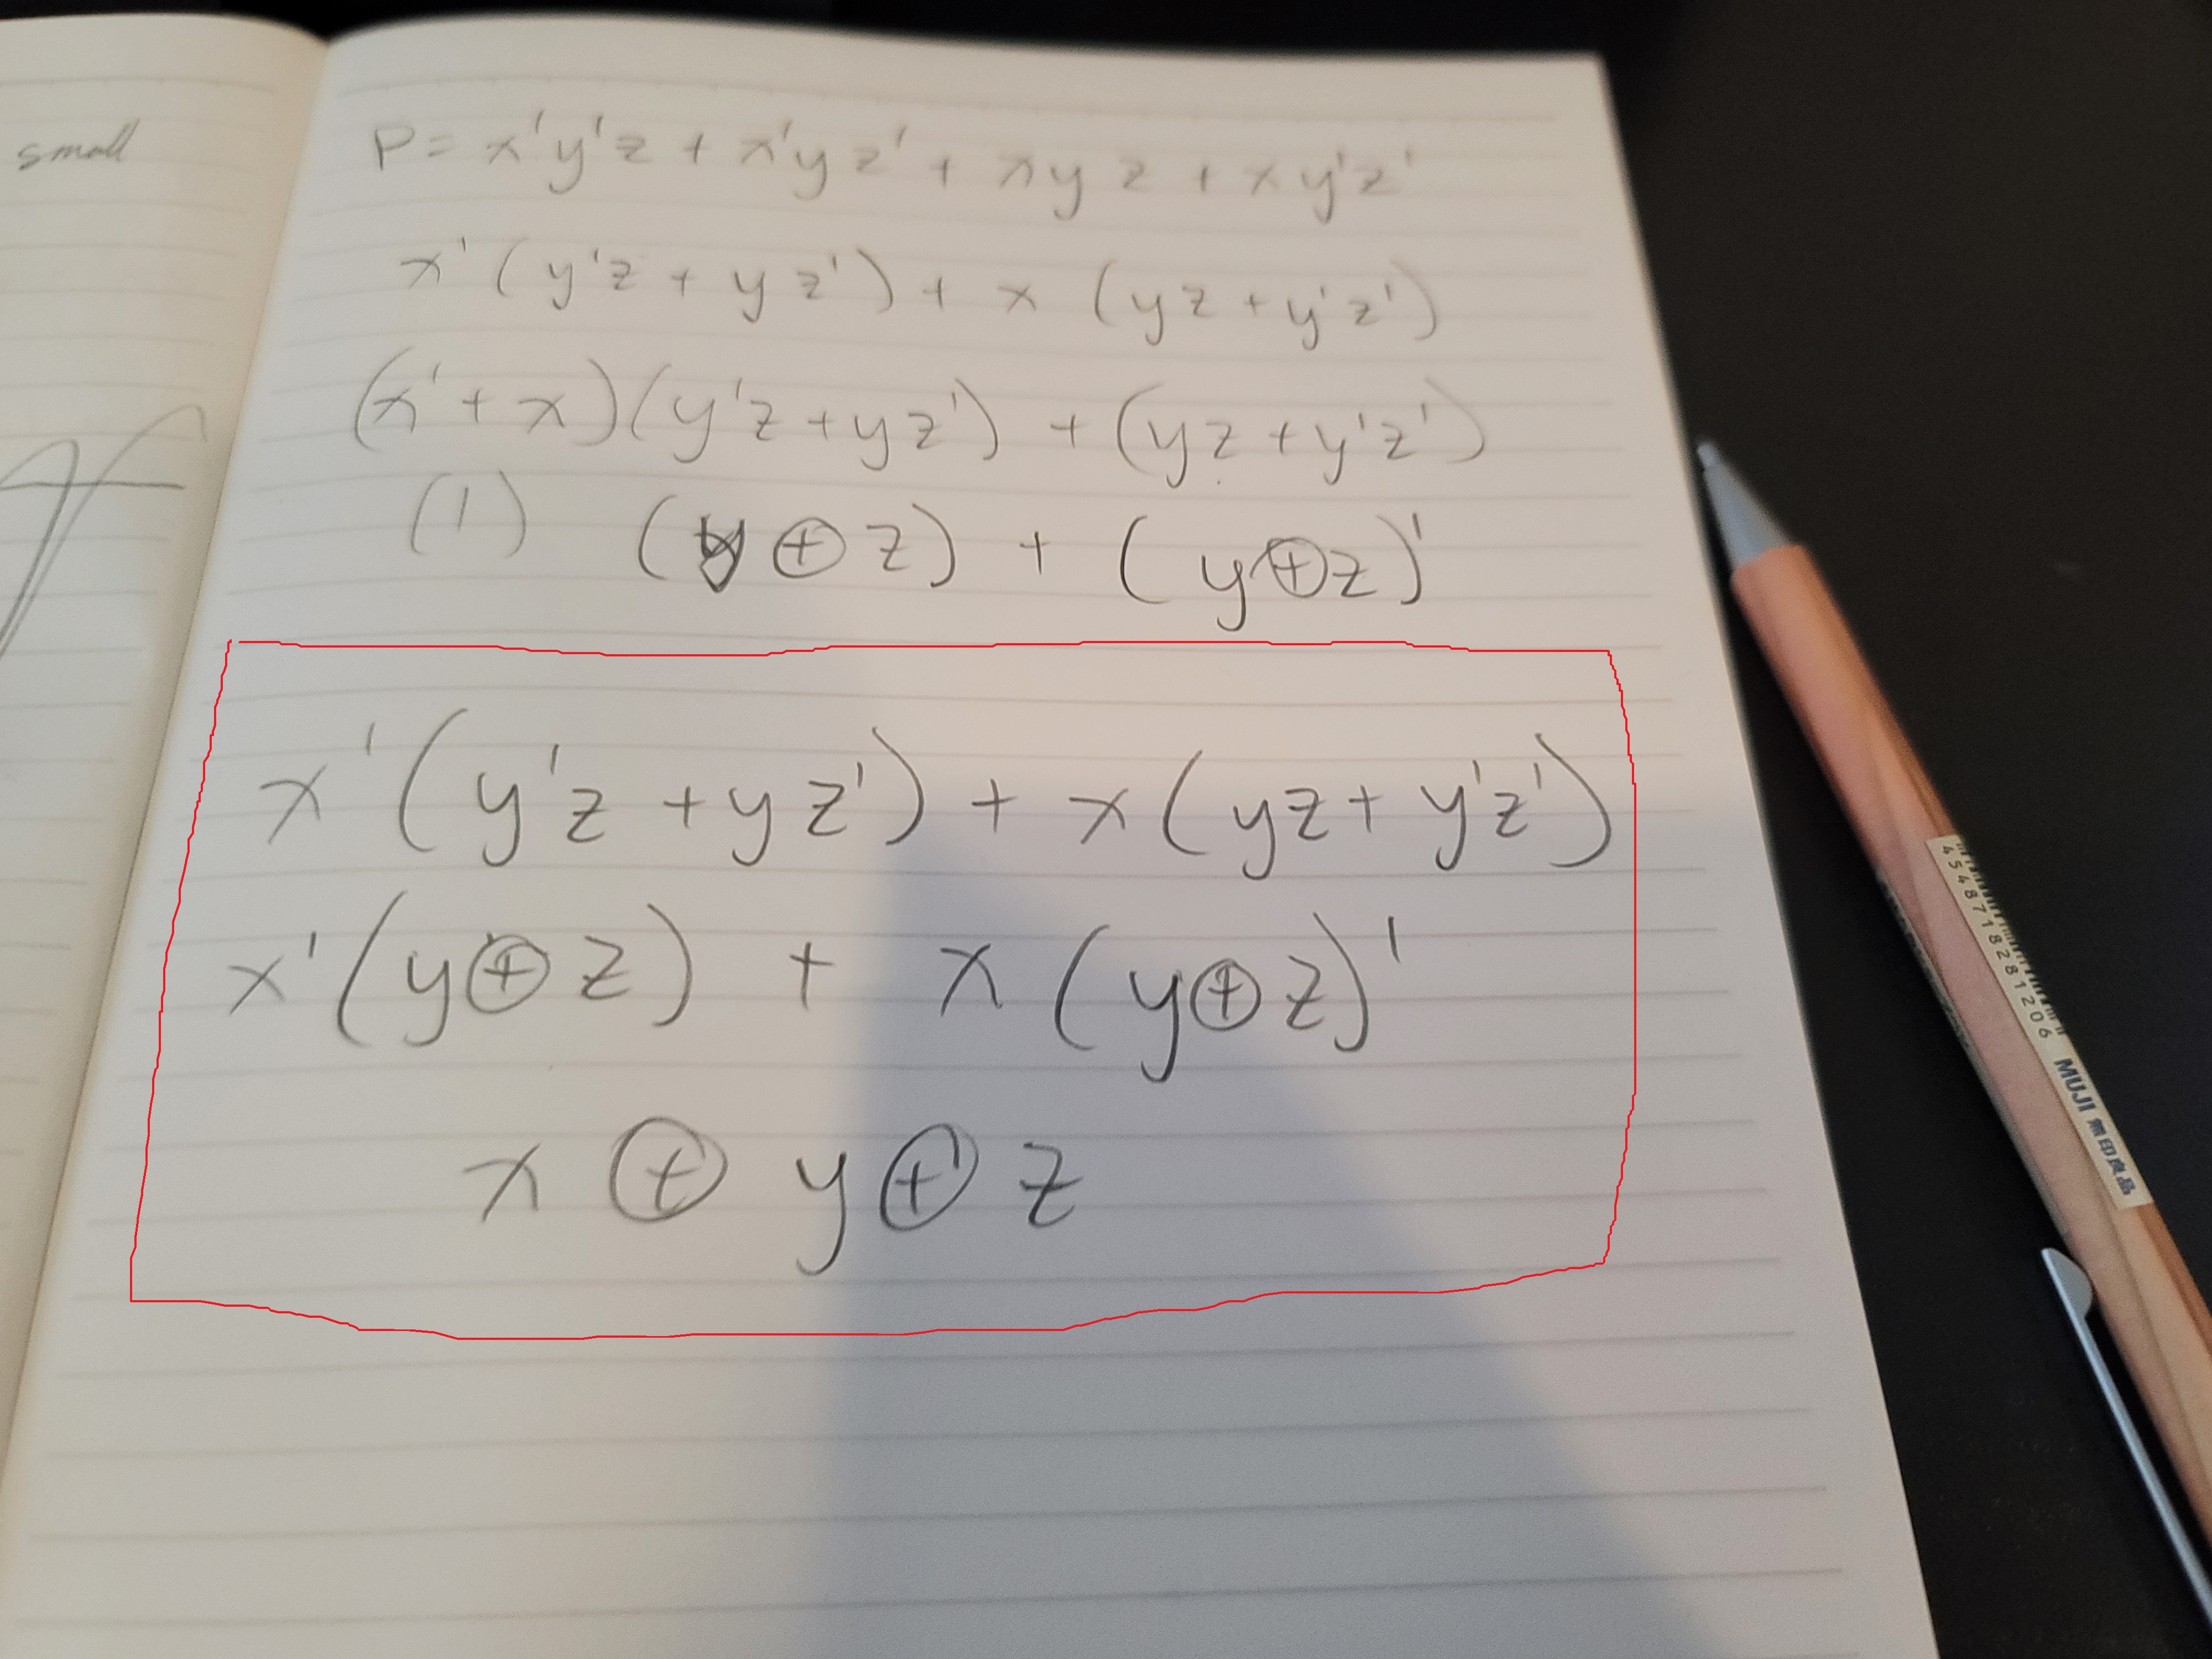 small
P = x'y'z + x'yz' + xyz + xy'z'
x'(y'z + yz') + x(yz + y'z')
(x' + x)(y'z + yz') + (yz + y'z')
(1) (y ⊕ z) + (y ⊕ z)'
x'(y'z + yz') + x(yz + y'z')
x'(y ⊕ z) + x(y ⊕ z)'
x ⊕ y ⊕ z
4 548718 281206 MUJI 無印良品